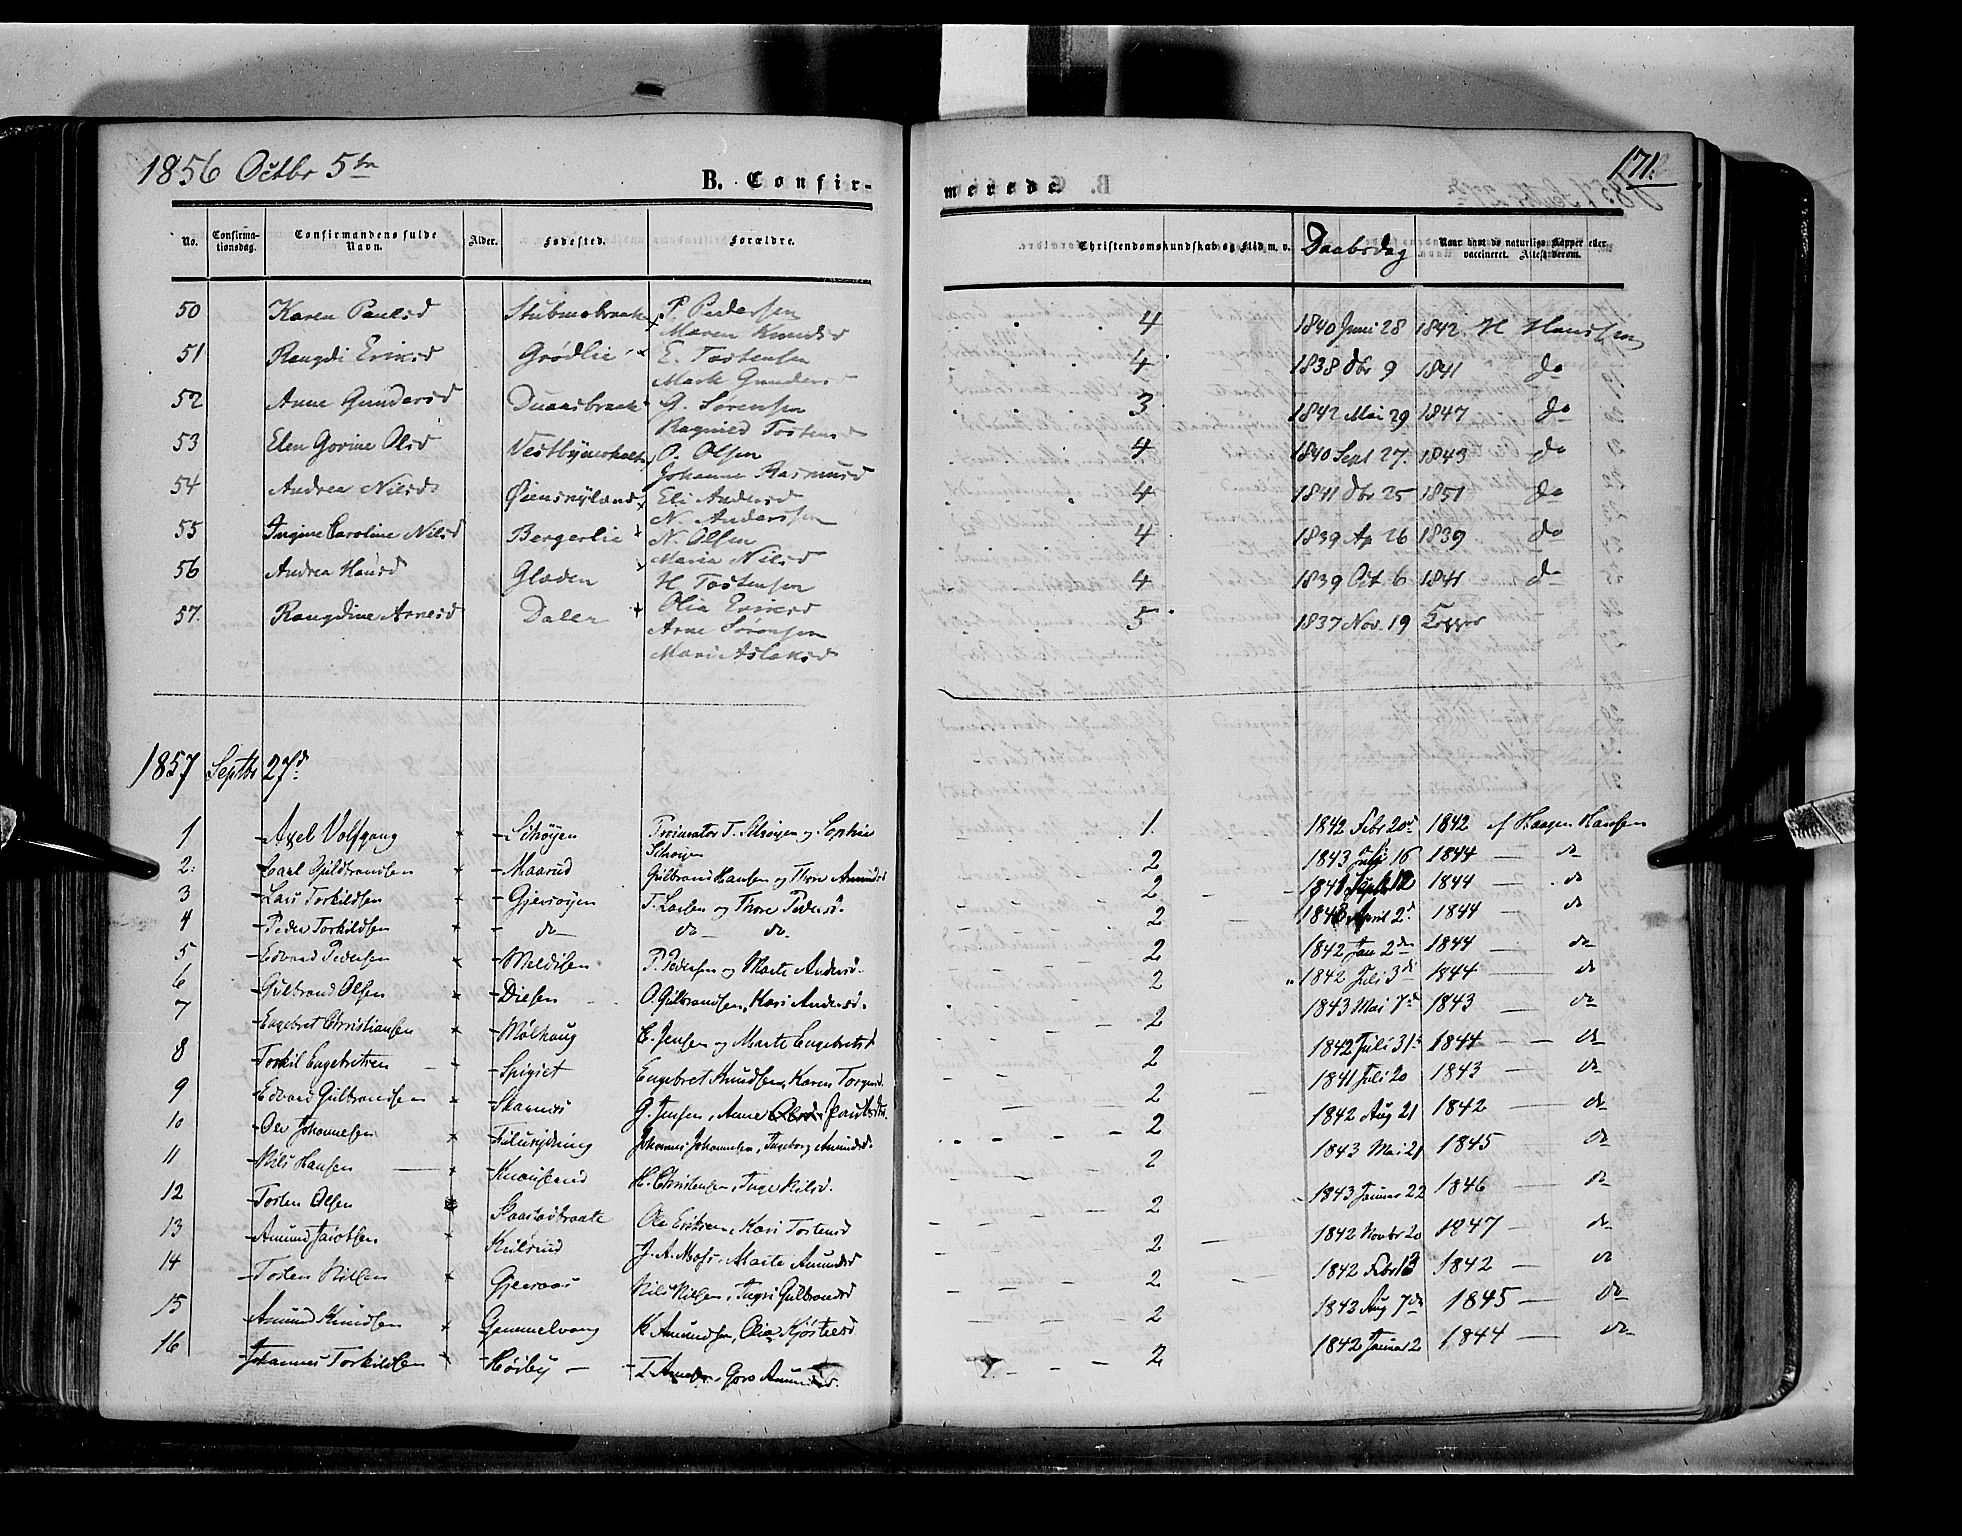 1856 Octbr 5te
B. Confir-
merede.
171.
No. Confirma-tionsdag. Confirmandens fulde Navn. Alder. Fødested. Forældre. Christendomskundskab og Flid m. v. Daabsdag Naar havt de naturlige Kopper eller vaccineret. Attest derom.
50 Karen Paulsd P. Pedersen Maren Knudsd 4 1840 Juni 28 1842 H Hanssen
51 Rangdi Eriksd Grødlie E. Tostensen Marte Gunders 4 1838 Dbr 9 1841 do
52 Anne Gundersd G. Sørensen Ragnild Tostensd 3 1842 Mai 29 1847 do
53 Elen Govine Olsd O. Olsen Johanne Rasmusd 4 1840 Sept 27. 1843 do
54 Andrea Nilsd Eli Andersd N. Andersen 4 1841 Dbr 25 1851 do
55 Ingine Caroline Nilsd Bergerlie N. Olsen Maria Nilsd 4 1839 Ap 26 1839 do
56 Andrea Hansd Gladen H Tostensen Olia Eriksd 4 1839 Oct 6 1841 do
57. Rangdine Arnesd Daler Arne Sørensen Mari Aslaksd 5 1837 Nov. 19 Kopper
1857 Septbr 27d
1 Axel Volfgang Schøyen Procurator T. Schøyen og Sophie Schøyen 1. 1842 Febr 20d 1842 af Haagen Hansen
2. Carl Gulbrandsen Maarud Gulbrand Hansen og Thore Amundsd 2 1843 Juli 16 1844 do
3 Lars Torkildsen Gjersøyen T. Larsen og Thore Pedersd. 2 1844 do
4 Peder Torkildsen do do do. 2 1843 April 2d 1844 do
5 Edvard Pedersen Meldisen P. Pedersen og Marte Andersd. 2 1842 Jan 2den 1844 do
6 Gulbrand Olsen Diesen O. Gulbrandsen, Kari Andersd. 2 1842 Juli 3di 1844 do
7 Engebret Christiansen Mølhaug C. Jensen og Marte Engebretsd 2 1843 Mai 7d 1843 do
8 Torkil Engebretsen Spigset Engebret Knudsen, Karen Torgersd. 2 1842 Juli 31t 1844 do
9 Edvard Gulbrandsen Skarnæs G. Jensen, Anne 2 1841 Juli 20 1843 do
10 Ole Johannesen Johannes Johannesen, Ingeborg Amundsd. 2 1842 Aug 21 1842 do
11 Nils Hansen H. Christensen, Inge Nilsd. 2 1843 Mai 21 1845 do
12 Tosten Olsen Skaarstadbraate Ole Eriksen, Kari Tostensd 2 1843 Januar 22 1846 do
13 Amund Jacobsen Kulsrud J. A. Moss, Marte Amundsd 2 1842 Novbr 20 1847 do
14 Tosten Nilsen Gjersaas Nils Nilsen, Ingri Gulbrandsd 2 1842 Febr 13 1842 do
15 Amund Knudsen Gammelvang K. Amundsen, Olia Kjøstelsd 2 1842 Aug 7de 1845 do
16 Johannes Torkildsen Høiby T. Goro Amundsd. 2 1842 Januar 2 1844 do